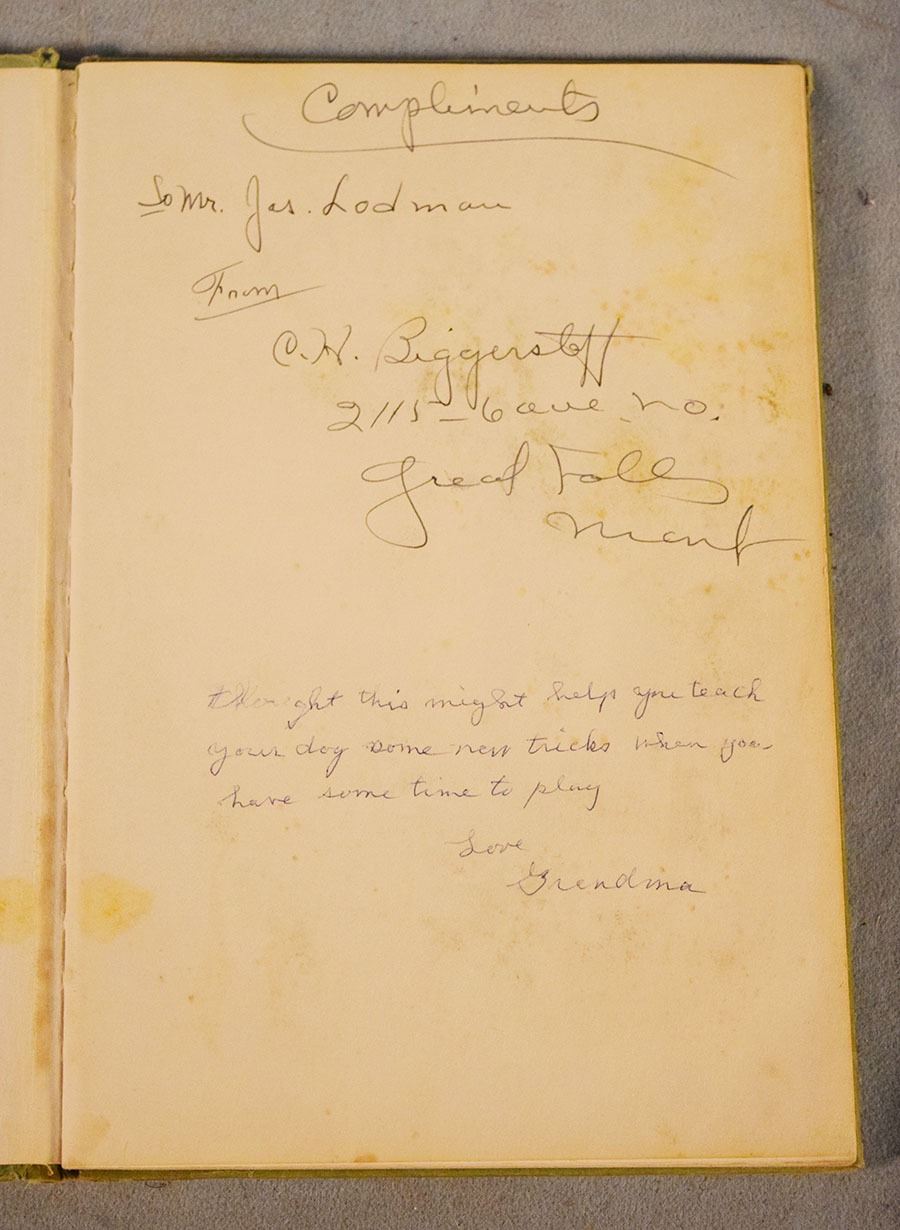 Compliments
To Mr. Jas. Lodman
From
C.H. Biggerstaff
2115-6 ave no.
Great Falls
Mont
thought this might help you teach
your dog some new tricks when you
have some time to play
Love
Grandma